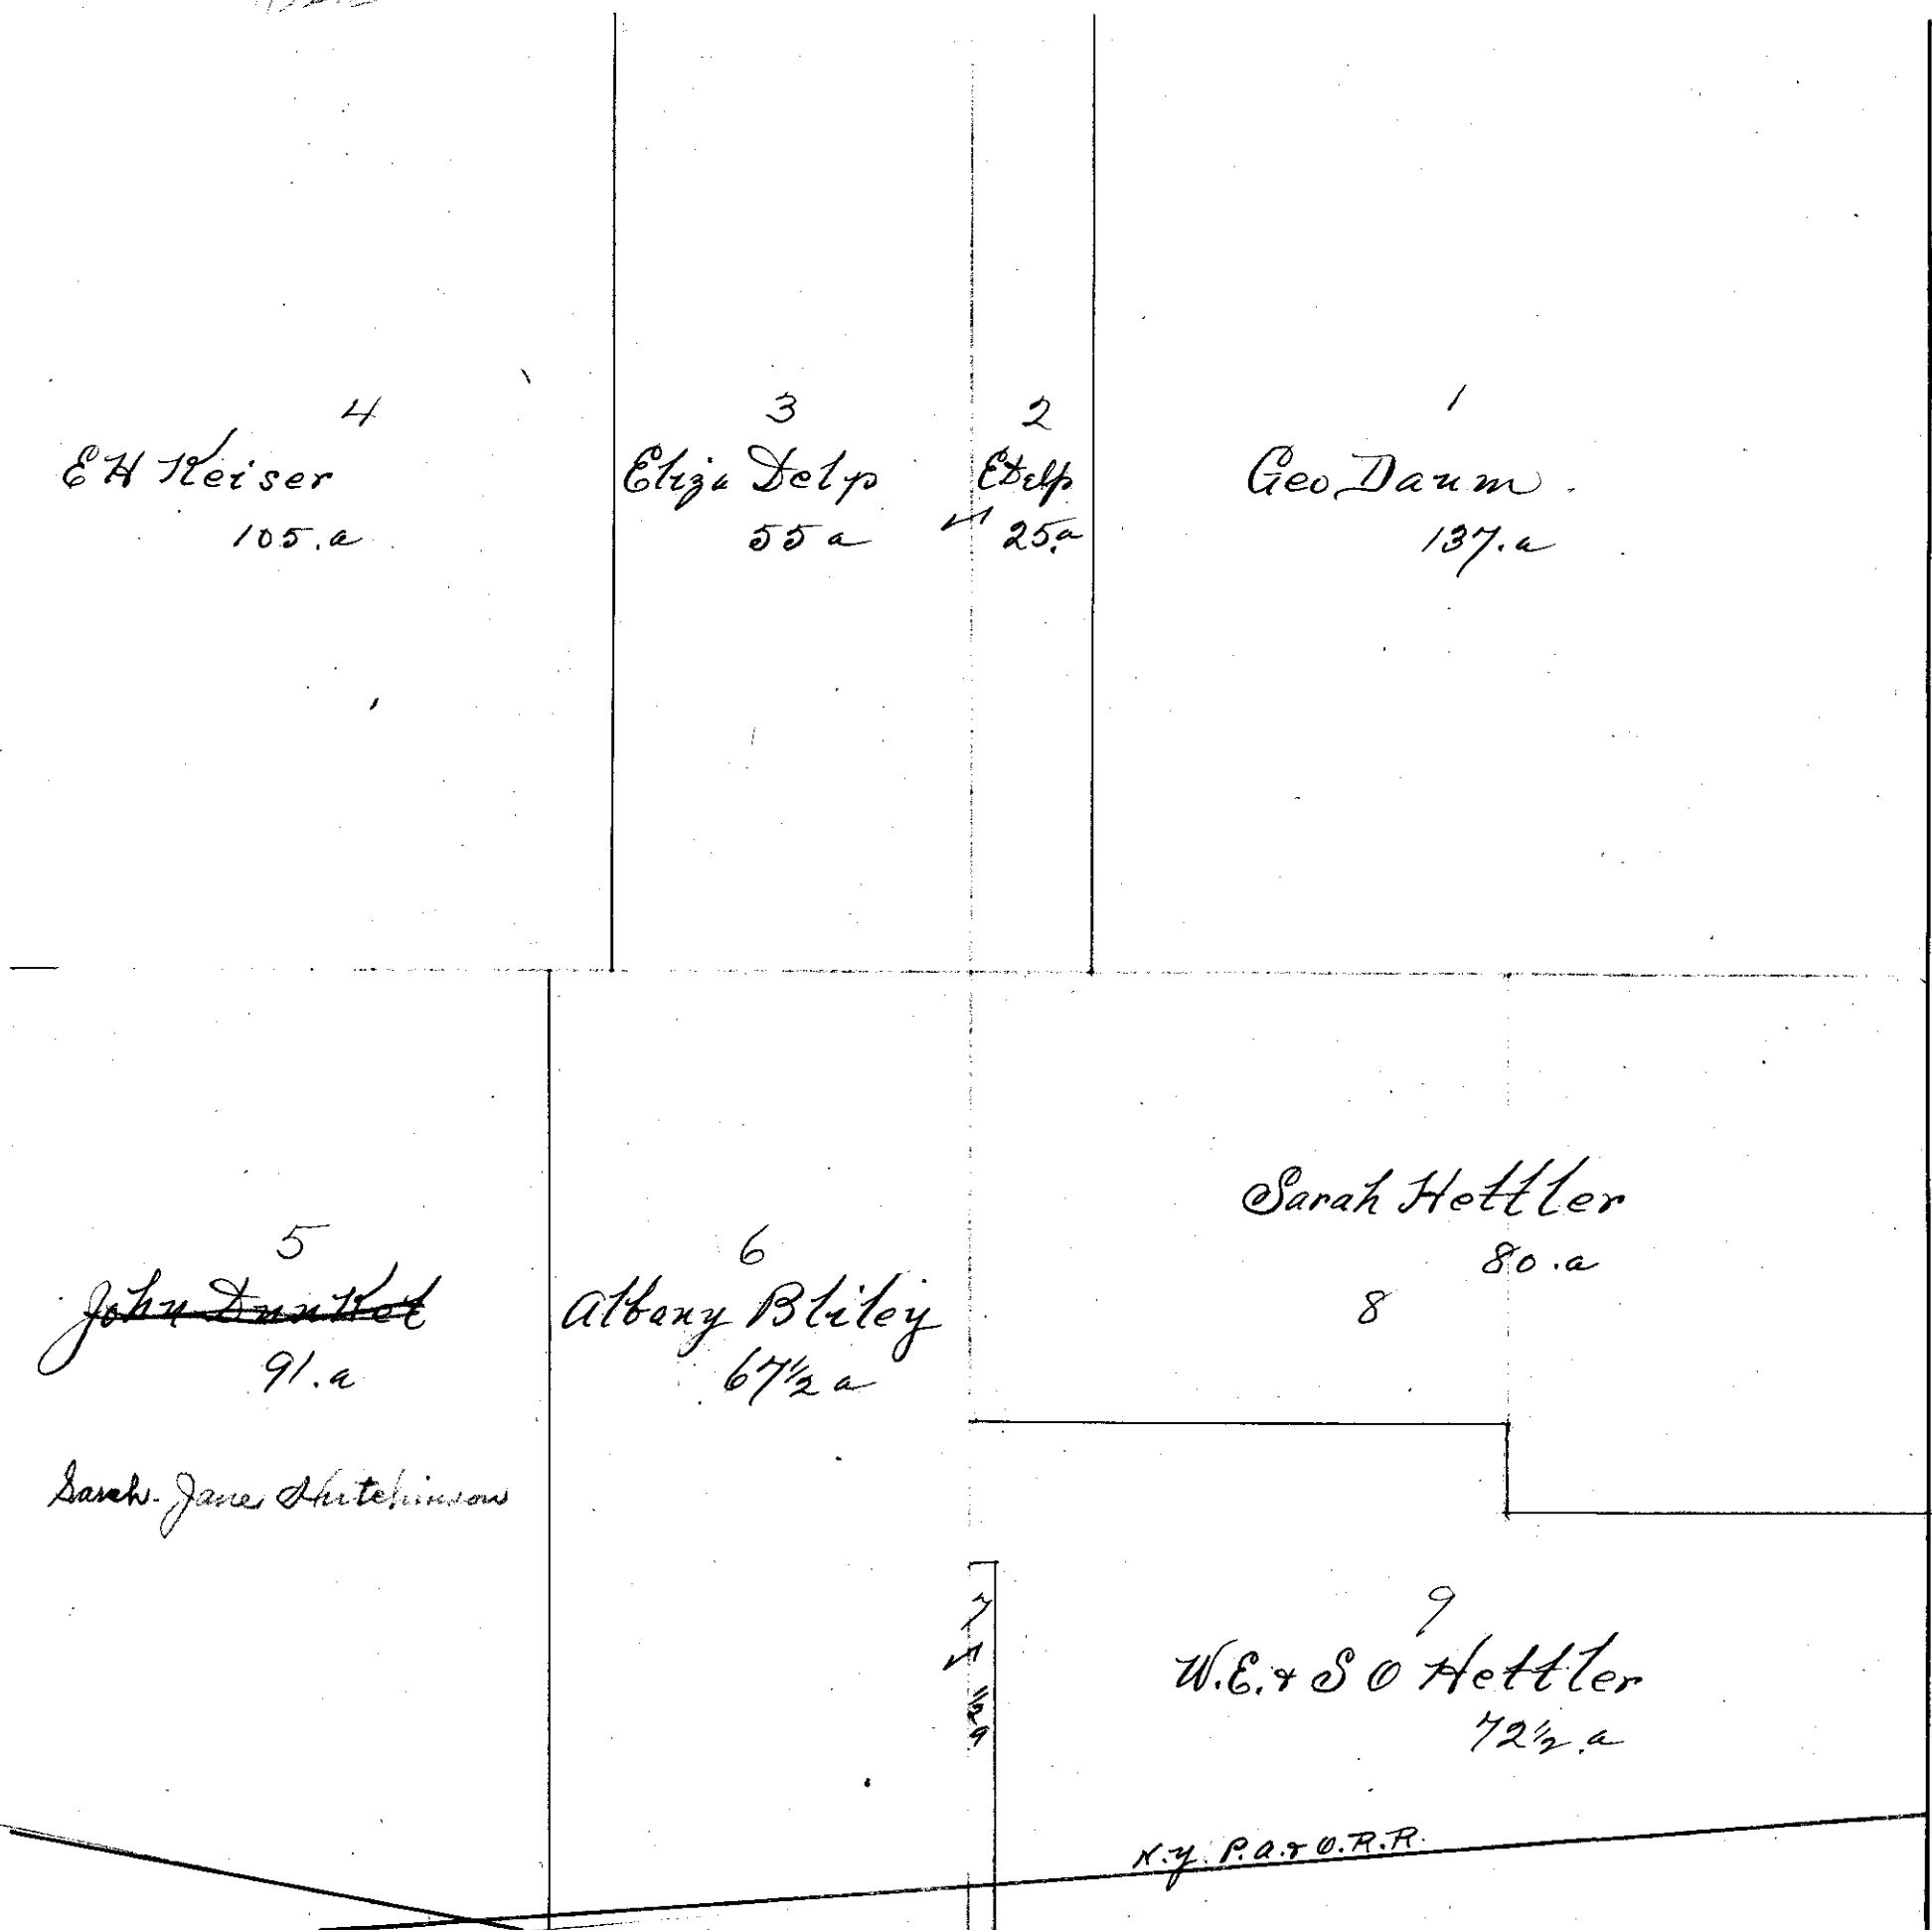 4
E H Keiser
105.a
3
Eliza Delp
55 a
2
E Delp
25.a
1
Geo Daum
137.a
5
John Dunkel
91.a
Sarah Jane Hutchinson
6
Albany Bliley
67½ a
Sarah Hettler
80.a
8
7
9
W.E. & S O Hettler
72½.a
N.Y. P.A. & O.R.R.